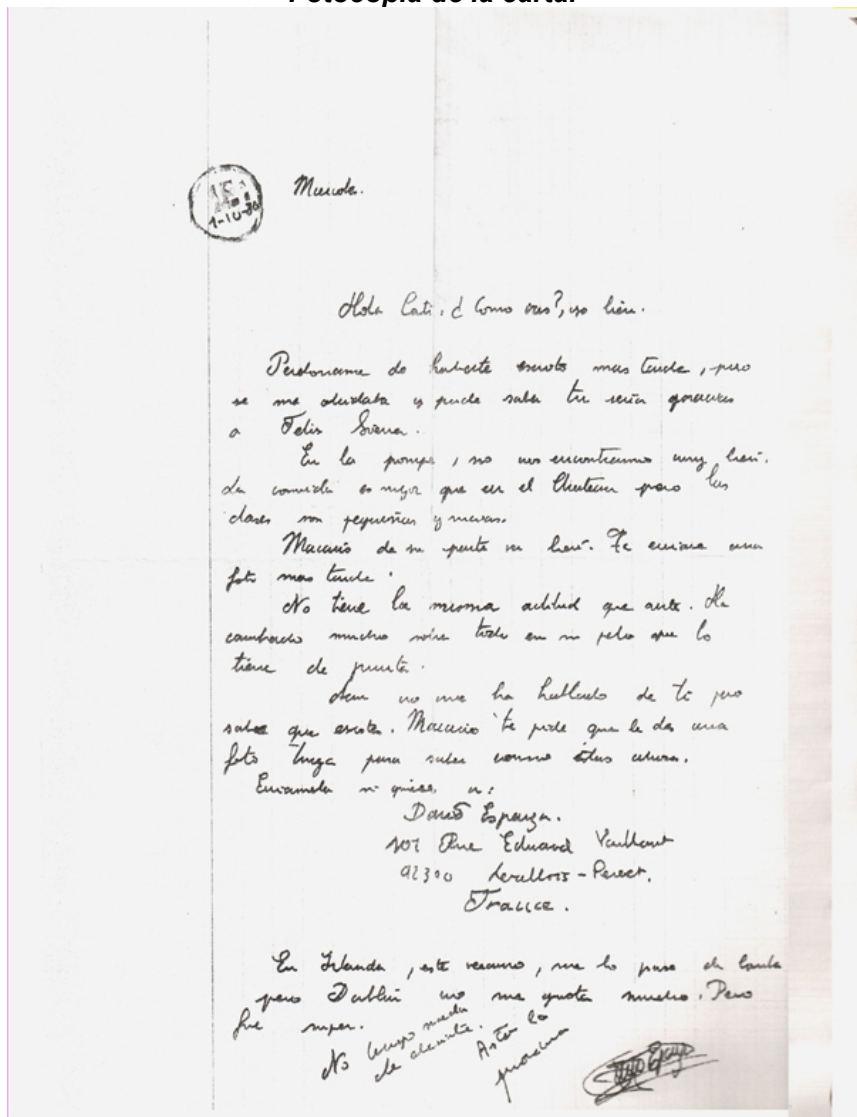 Fotocopia de la carta:
1-10-
Hola Cati, ¿ Como vas?, yo bien.
Perdoname de haberte escrito mas tarde, pero
se me olvidaba y pude saber tu gracias
a Felix
En la pompe, no nos encontramos muy bien.
La comida es mejor que en el Chateau pero las
clases son pequeñas y nuevas.
Macario de su parte va bien. Te enviare una
foto mas tarde.
No tiene la misma actitud que ante. Ha
cambiado mucho sobre todo en su pelo que lo
tiene de punta.
no me ha hablado de ti pero
sabe que existes. Macario te pide que le des una
foto tuya para saber como estas ahora.
Enviamela si quieres a:
David Esparza.
107 Rue Eduard Vaillant
92300 Levallois-Perret.
France.
En Irlanda, este verano, me lo pase de
pero Dublin no me gusta mucho. Pero
fue super.
No tengo nada
de
Asta la
proxima